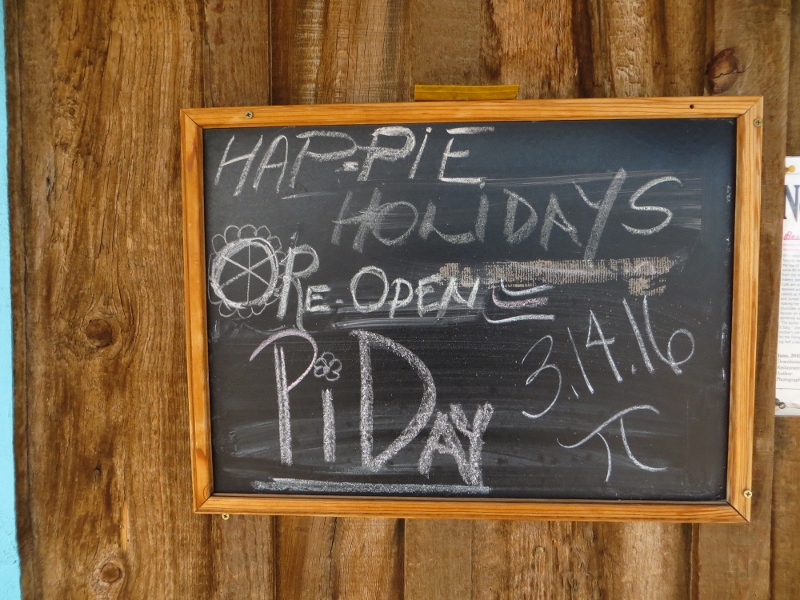 HAP-PIE
HOLIDAYS
RE-OPEN
Pi DAY
3.14.16
π